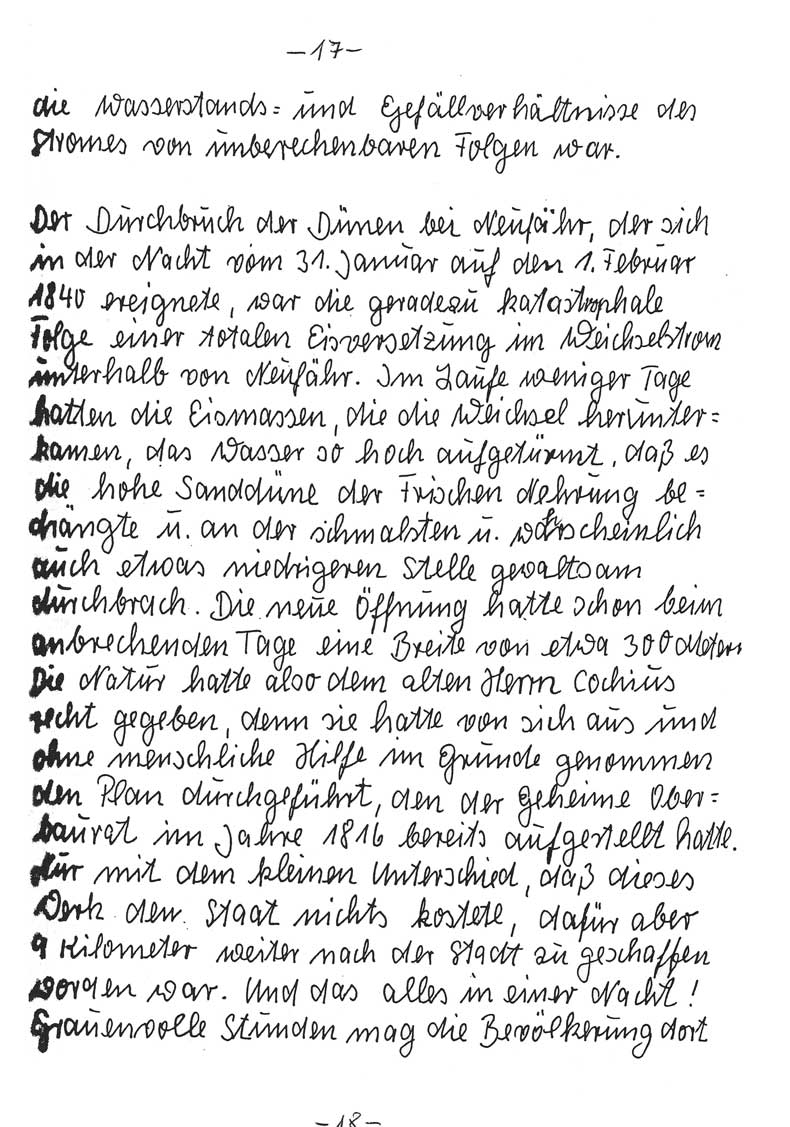 – 17 –
die Wasserstands= und Gefällverhältnisse des
Stromes von unberechenbaren Folgen war.
Der Durchbruch der Dünen bei Neufähr, der sich
in der Nacht vom 31. Januar auf den 1. Februar
1840 ereignete, war die geradezu katastrophale
Folge einer totalen Eisversetzung im Weichselstrom
unterhalb von Neufähr. Im Laufe weniger Tage
hatten die Eismassen, die die Weichsel herunter=
kamen, das Wasser so hoch aufgetürmt, daß es
die hohe Sanddüne der Frischen Nehrung be=
drängte u. an der schmalsten u. wahrscheinlich
auch etwas niedrigeren Stelle gewaltsam
durchbrach. Die neue Öffnung hatte schon beim
anbrechenden Tage eine Breite von etwa 300 Metern
Die Natur hatte also dem alten Herrn Cochius
recht gegeben, denn sie hatte von sich aus und
ohne menschliche Hilfe im Grunde genommen
den Plan durchgeführt, den der Geheime Ober=
baurat im Jahre 1816 bereits aufgestellt hatte.
Nur mit dem kleinen Unterschied, daß dieses
Werk den Staat nichts kostete, dafür aber
9 Kilometer weiter nach der Stadt zu geschaffen
worden war. Und das alles in einer Nacht!
Grauenvolle Stunden mag die Bevölkerung dort
– 18 –